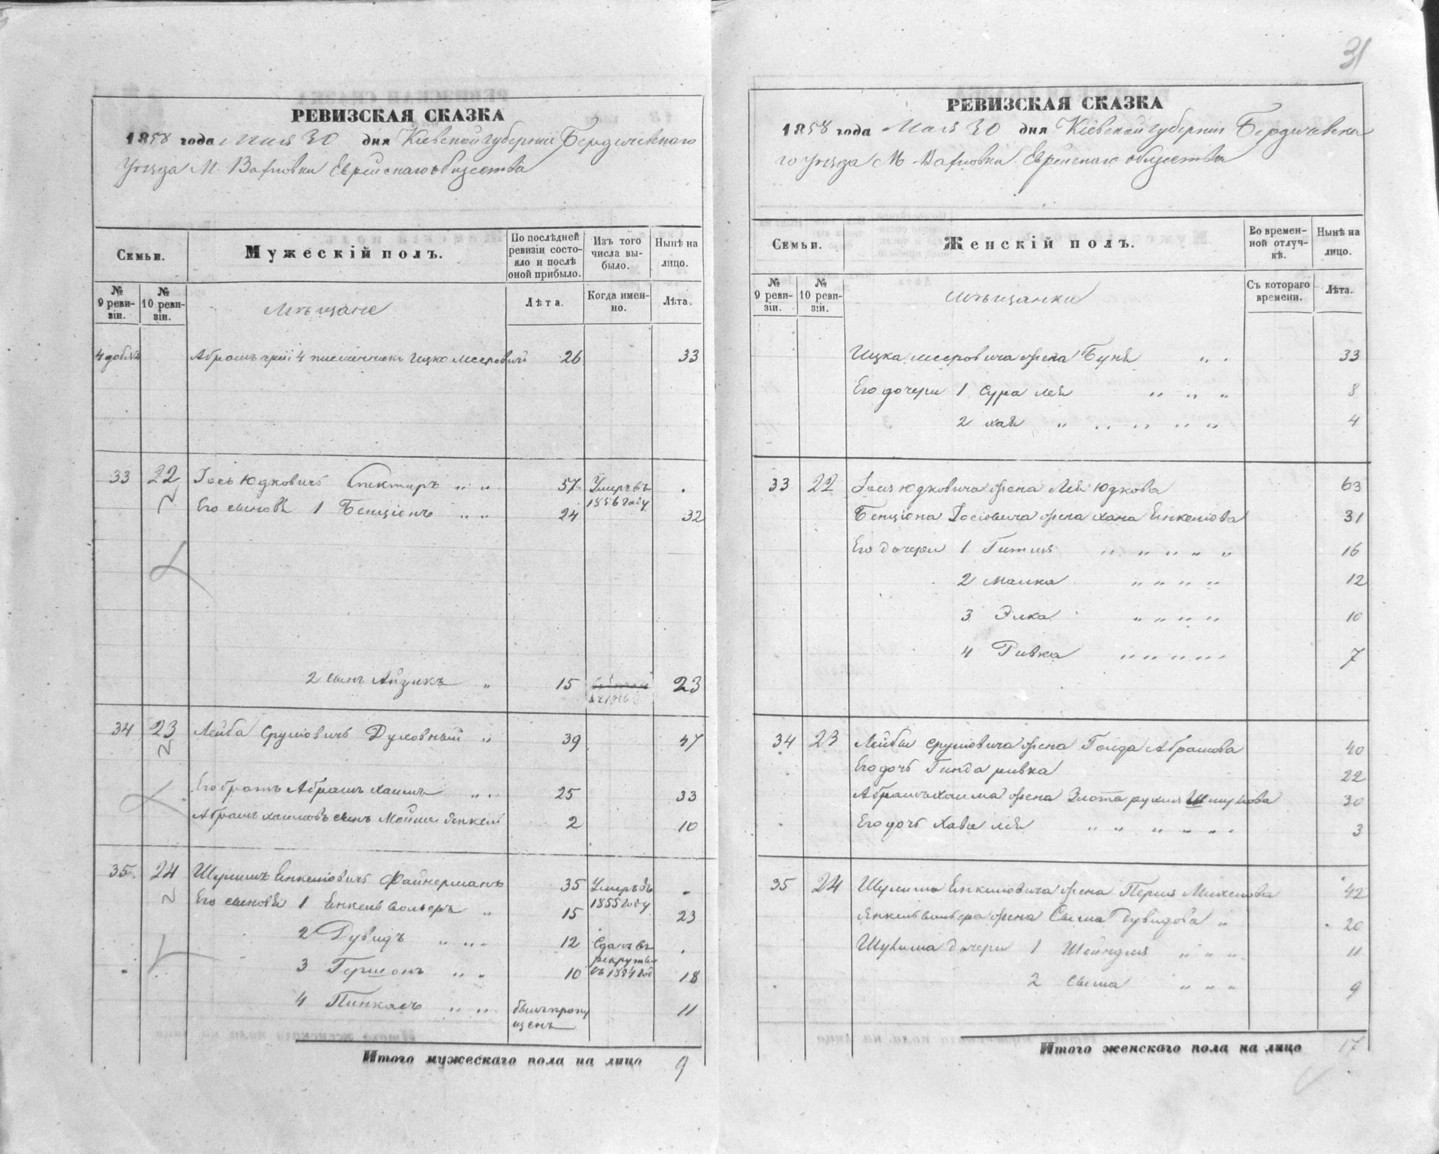 РЕВИЗСКАЯ СКАЗКА
1858 года Мая 30 дня Кіевской губерніи Бердичевскаго
Уезда М. Вахновки Еврейскаго общества
Семьи.
Мужескій полъ.
По послѣдней ревизіи состояло и послѣ оной прибыло.
Изъ того числа выбыло.
Нынѣ на лицо.
№ 9 ревизіи.
№ 10 ревизіи.
Мѣщане
Лѣта.
Когда именно.
Лѣта.
4 Ицко Меерович 26 33
33 22 Іось Юдковичъ Спекторъ „ „ 57 Умеръ въ 1856 году
Его сыновя 1 Бенціонъ „ „ 24 32
2 сынъ Айзикъ „ 15 23
34 23 Лейба Сруловичъ Духовный „ 39 47
Его братъ Абрамъ Хаимъ „ „ 25 33
Абрамъ Хаимовъ сынъ Мойше Янкель 2 10
35 24 Шулимъ Янкелювичъ Файнерманъ 35 Умеръ въ 1855 году
Его сыновя 1 Янкель Вольверъ „ 15 23
2 Дувидъ „ „ „ 12 Сданъ въ рекруты въ 1854 год
3 Гершонъ „ „ 10 18
4 Пинкасъ „ „ былъ пропущенъ 11
Итого мужескаго пола на лицо 9
31
РЕВИЗСКАЯ СКАЗКА
1858 года Мая 30 дня Кіевской губерніи Бердичевска
го уезда М. Вахновки Еврейскаго общества
Семьи.
Женскій полъ.
Во временной отлучкѣ.
Нынѣ на лицо.
№ 9 ревизіи.
№ 10 ревизіи.
Мѣщанки
Съ котораго времени.
Лѣта.
Ицка Мееровича жена Буня „ „ 33
Его дочери 1 Сура Лея „ „ „ 8
2 Хая „ „ „ „ „ „ 4
33 22 Іося Юдковича жена Лея Юдкова 63
Бенціона Іосіовича жена Хана Янкелюва 31
Его дочери 1 Гитля „ „ „ „ „ 16
2 Малка „ „ „ „ 12
3 Элка „ „ „ „ 10
4 Ривка „ „ „ „ „ 7
34 23 Лейбы Сруловича жена Голда Абрамова 40
Его дочь Гинда Ривка 22
Абрамъ Хаима жена Злота Рухля 30
Его дочь Хава Лея „ „ „ „ „ „ 3
35 24 Шулима Янкелювича жена Перля 42
Янкель Вольвера жена Сыма Дувидова „ 20
Шулима дочери 1 Шейндля „ „ „ 11
2 Сыма „ „ „ 9
Итого женскаго пола на лицо 17